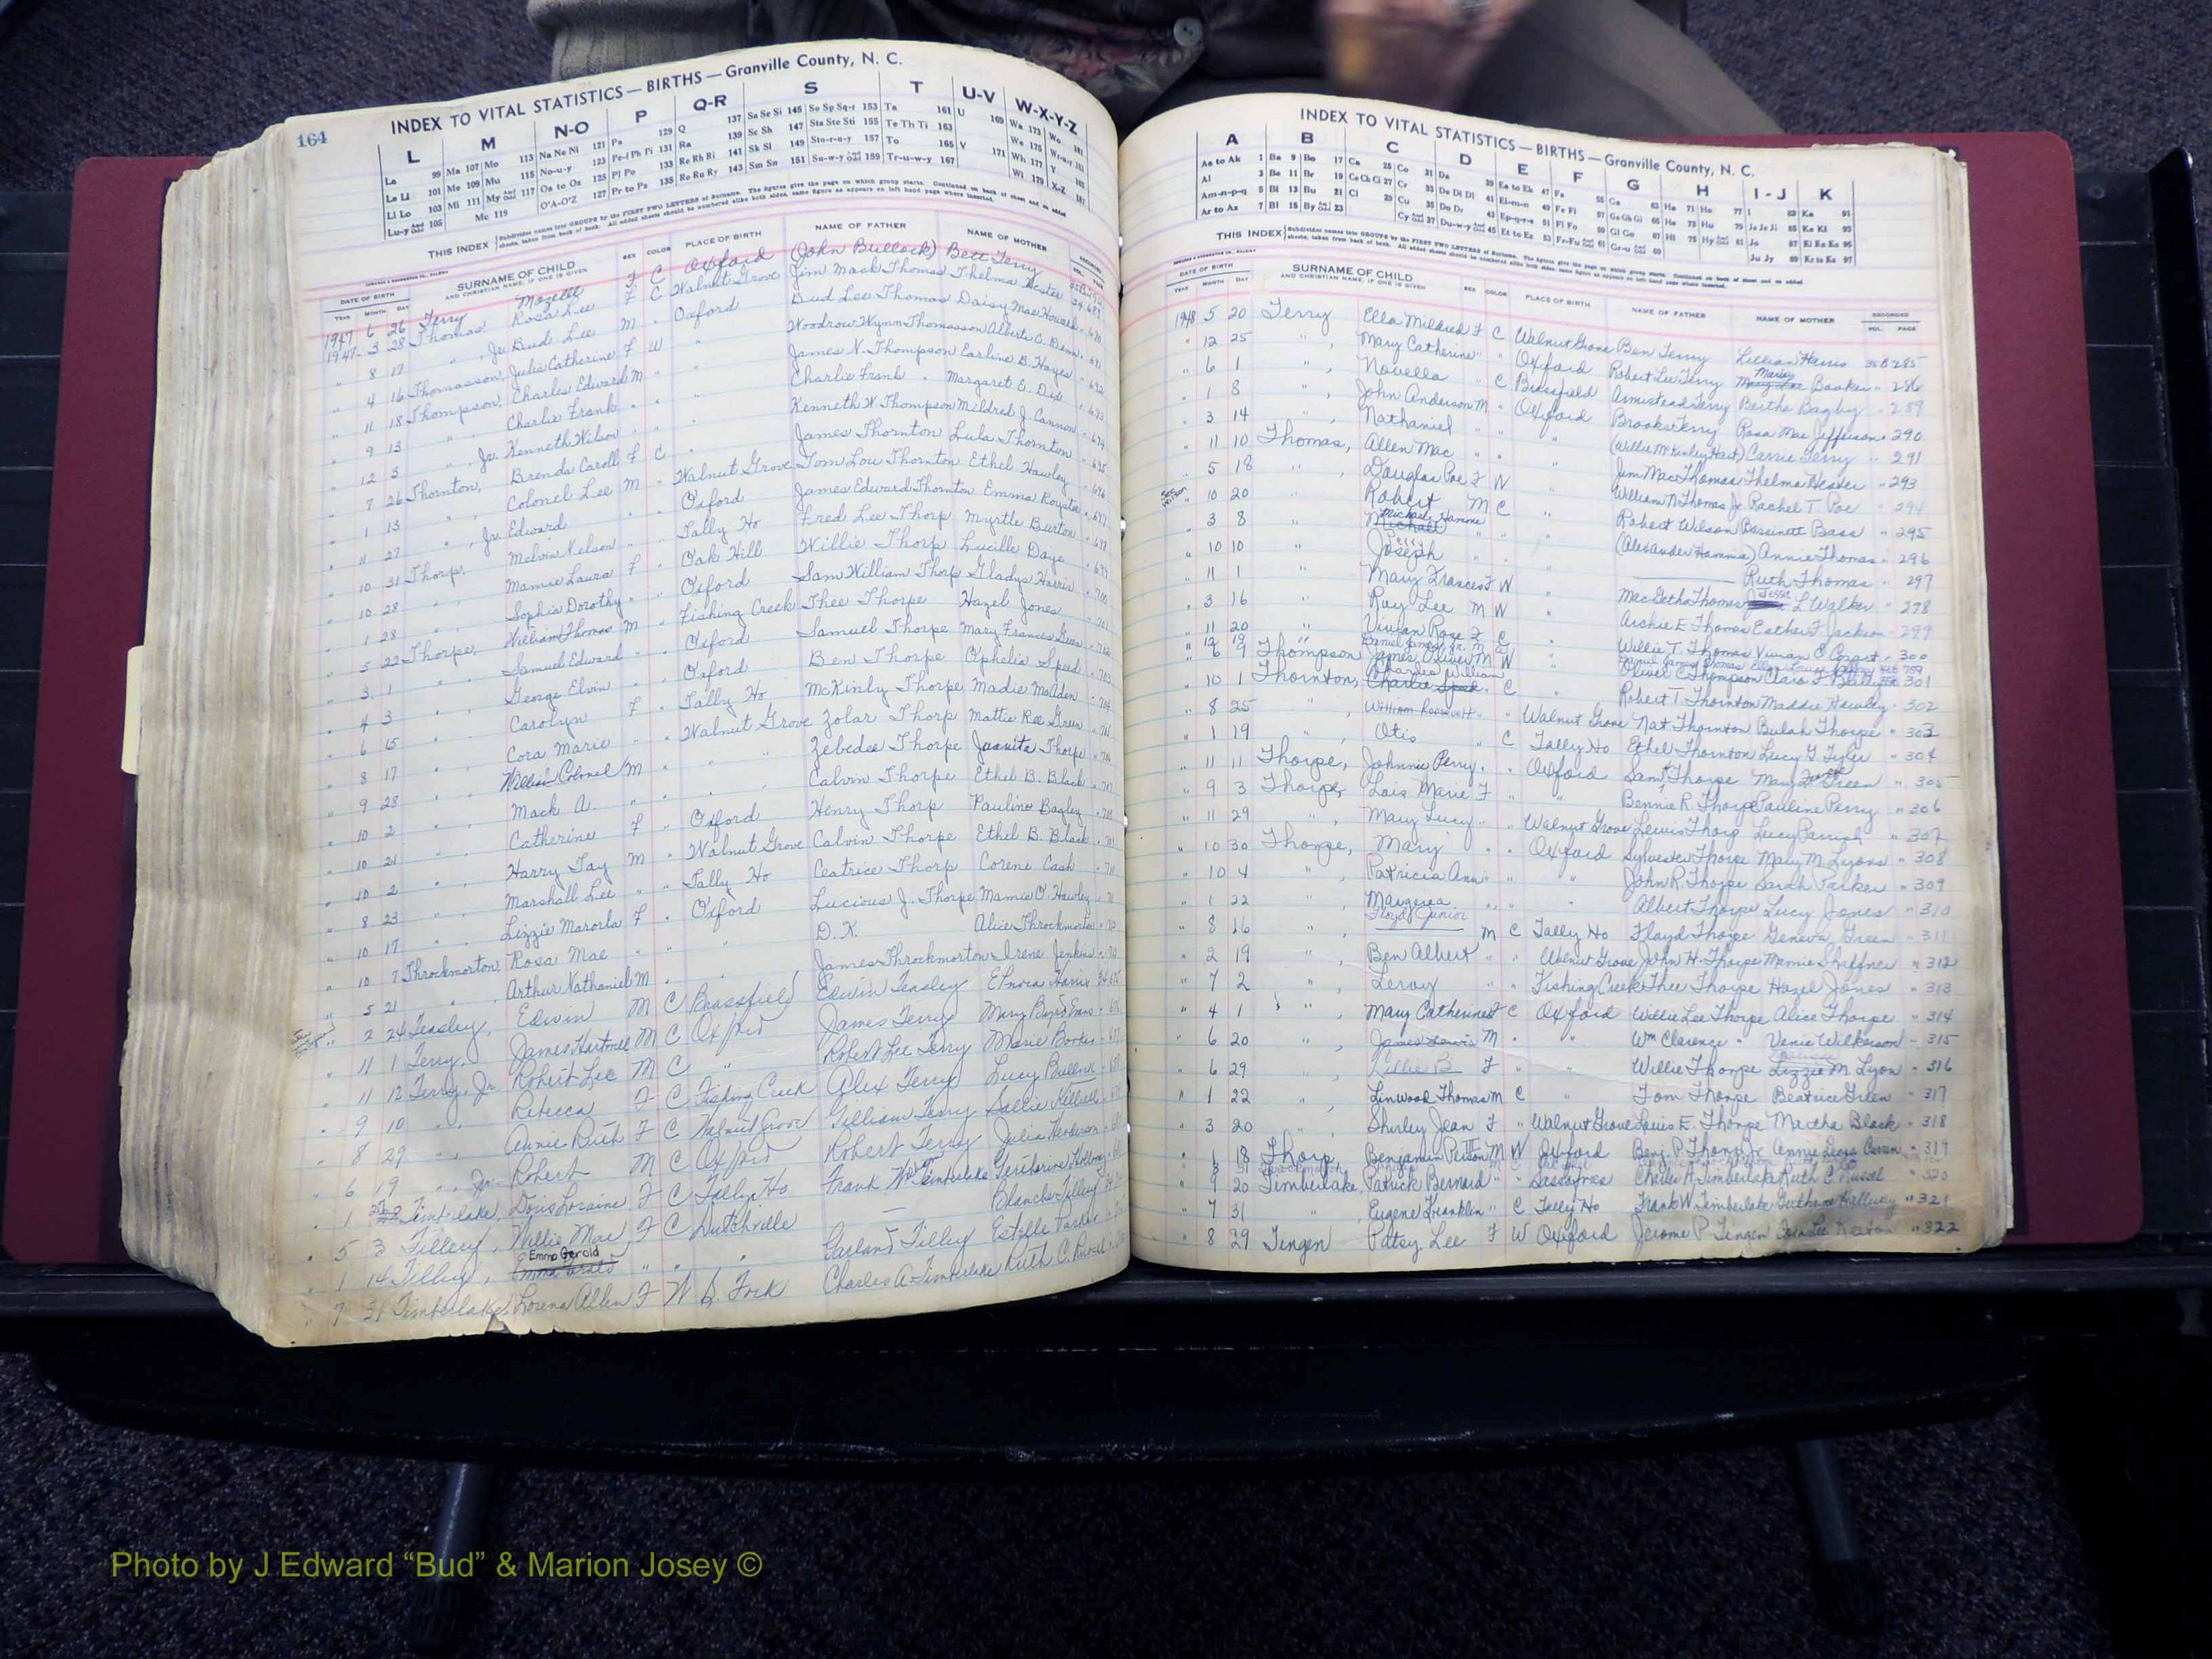 164
INDEX TO VITAL STATISTICS — BIRTHS — Granville County, N. C.
L M N-O P Q-R S T U-V W-X-Y-Z
La 99 Ma 107 Mo 113 Na Ne Ni 121 Pa 129 Q 137 Sa Se Si 145 So Sp Sq-r 153 Ta 161 U 169 Wa 173 Wo 181
Le Li 101 Me 109 Mu 115 No-u-y 123 Pe-f Ph Pi 131 Ra 139 Sc Sh 147 Sta Ste Sti 155 Te Th Ti 163 We 175
Ll Lo 103 Mi 111 My and Odd 117 Oa to Oz 125 Pl Po 133 Re Rh Ri 141 Sk Sl 149 Sto-r-u-y 157 To 165 V 171 Wh 177 Y
Lu-y and Odd 105 Mc 119 O'A-O'Z 127 Pr to Pz 135 Ro Ru Ry 143 Sm Sn 151 Su-w-y and Odd 159 Tr-u-w-y 167 Wi 179 X-Z
THIS INDEX Subdivides names into GROUPS by the FIRST TWO LETTERS of Surname. The figures give the page on which group starts. Continued on back of sheet and on added
sheets, taken from back of book. All added sheets should be numbered alike both sides, same figure as appears on left hand page where inserted.
DATE OF BIRTH SURNAME OF CHILD SEX COLOR PLACE OF BIRTH NAME OF FATHER NAME OF MOTHER RECORDED
YEAR MONTH DAY AND CHRISTIAN NAME, IF ONE IS GIVEN VOL. PAGE
1947 6 26 Terry Mozelle F C Oxford (John Bullock) Bett Terry
1947 3 28 Thomas Rosa Lee F C Walnut Grove Jim Mack Thomas Thelma Hester
" 8 17 " , Jr. Bud Lee M " Oxford Bud Lee Thomas Daisy Mae Howard 690
" 4 16 Thomasson, Julia Catherine F W " Woodrow Wynn Thomasson Alberta 691
" 11 18 Thompson, Charles Edward M " " James N. Thompson Earline B. Hayes 692
" 9 13 " Charlie Frank " " " Charlie Frank " Margaret E. 693
" 12 3 " , Jr. Kenneth Wilson " " " Kenneth W Thompson Mildred J. Cannon 694
" 7 26 Thornton, Brenda Caroll F C " James Thornton Lula Thornton 695
" 1 13 " , Colonel Lee M " Walnut Grove Tom Lou Thornton Ethel Hawley 696
" 11 27 " , Jr. Edward " " Oxford James Edward Thornton Emma Royster 697
" 10 31 Thorp, Melvin Nelson " " Tally Ho Fred Lee Thorp Myrtle Burton 698
" 10 28 " , Mamie Laura F " Oak Hill Willie Thorp Lucille Daye 699
" 1 28 " , Sophia Dorothy " " Oxford Sam William Thorp Gladys Harris 700
" 5 22 Thorpe, William Thomas M " Fishing Creek Thee Thorpe Hazel Jones 701
" 3 1 " , Samuel Edward " " Oxford Samuel Thorpe Mary Frances
" 4 3 " , George Elvin " " Oxford Ben Thorpe Ophelia Speed 703
" 6 15 " , Carolyn F " Tally Ho McKinly Thorpe Madie McAden 704
" 8 17 " , Cora Marie " " Walnut Grove Zolar Thorp Mattie Rae Green 705
" 9 28 " , Willie Colonel M " " Zebedee Thorpe Juanita Thorpe 706
" 10 2 " , Mack A. " " " Calvin Thorpe Ethel B. Black 707
" 10 21 " , Catherine F " Oxford Henry Thorp Pauline Bagley 708
" 10 2 " , Harry Jay M " Walnut Grove Calvin Thorpe Ethel B. Black 709
" 8 23 " , Marshall Lee " " Tally Ho Ceatrice Thorp Corene Cash
" 10 17 " , Lizzie Marorla F " Oxford Lucious J. Thorpe Mamie O. Hawley
" 10 7 Throckmorton, Rosa Mae " " " D. K. Alice Throckmorton
" 5 21 " , Arthur Nathaniel M " " James Throckmorton Irene Jenkins
" 2 24 Teasley, Edwin M C Brassfield Edwin Teasley Elnora Harris
" 11 1 Terry, James Hartwell M C Oxford James Terry Mary Byrd Evans
" 11 12 Terry, Jr. Robert Lee M C " Robert Lee Terry Marie Booker
" 9 10 " , Rebecca F C Fishing Creek Alex Terry Lucy Bullock
" 8 29 " , Annie Ruth F C Walnut Grove Gilliam Terry Sallie
" 6 19 " , Jr. Robert M C Oxford Robert Terry Julia Henderson
" 1 Timberlake, Doris Loraine F C Tally Ho Frank Timberlake
" 5 3 Tillery, Willie Mae F C Dutchville — Blanche Tilley
" 1 14 Tilley, Emma Gerald " " " Garland Tilley Estelle Parker
" 7 31 Timberlake, Lorena Allen F W S. Fork Charles A. Timberlake Ruth C. Russel
INDEX TO VITAL STATISTICS — BIRTHS — Granville County, N. C.
A B C D E F G H I - J K
Aa to Ak 1 Ba 9 Bo 17 Ca 25 Co 31 Da 39 Ea to Ek 47 Fa 55 Ga 63 Ha 71 Ho 77 I 83 Ka 91
Al 3 Be 11 Br 19 Ce Ch Ci 27 Cr 33 De Di Dl 41 El-m-n 49 Fe Fi 57 Ge Gh Gi 65 He 73 Hu 79 Ja Je Ji 85 Ke Kl 93
Am-n-p-q 5 Bl 13 Bu 21 Cl 29 Cu 35 Do Dr 43 Ep-q-r-s 51 Fl Fo 59 Gl Go 67 Hi 75 Hy and Odd 81 Jo 87 Ki Kn Ko 95
Ar to Az 7 Bl 15 By and Odd 23 Cy and Odd 37 Du-w-y and Odd 45 Et to Ez 53 Fr-Fu and Odd 61 Gr-u and Odd 69 Ju Jy 89 Kr to Kz 97
THIS INDEX Subdivides names into GROUPS by the FIRST TWO LETTERS of Surname. The figures give the page on which group starts. Continued on back of sheet and on added
sheets, taken from back of book. All added sheets should be numbered alike both sides, same figure as appears on left hand page where inserted.
DATE OF BIRTH SURNAME OF CHILD SEX COLOR PLACE OF BIRTH NAME OF FATHER NAME OF MOTHER RECORDED
YEAR MONTH DAY AND CHRISTIAN NAME, IF ONE IS GIVEN VOL. PAGE
1948 5 20 Terry Ella Mildred F C Walnut Grove Ben Terry Lillian Harris 35B 285
" 12 25 " , Mary Catherine " " Oxford Robert Lee Terry Marie Booker " 286
" 6 1 " , Novella " C Brassfield Armistead Terry Bertha Bagby " 289
" 1 8 " , John Anderson M " Oxford Brooks Terry Rosa Mae Jefferson " 290
" 3 14 " , Nathaniel " " " (Willie McKinley Hart) Carrie Terry " 291
" 11 10 Thomas, Allen Mac " " " Jim Mac Thomas Thelma Hester " 293
" 5 18 " , Douglas Poe F W " William N Thomas Jr Rachel T. Poe " 294
See Wilson 10 20 " Robert M C " Robert Wilson Bessinett Bass " 295
" 3 8 " Michael " " " (Alexander Hamme) Annie Thomas " 296
" 10 10 " Joseph Perry " " " Ruth Thomas " 297
" 11 1 " Mary Frances F W " MacGetho Thomas Jesse L Walker " 298
" 3 16 " Ray Lee M W " Archie E Thomas Esther F. Jackson " 299
" 11 20 " Vivian Rose F C " Willie T. Thomas Vivian C Cozart " 300
" 12 19 " Daniel James Jr. M C Daniel James Thomas Ellen Louise
" 6 9 Thompson James Oliver M W " Oliver C Thompson Clara F. 301
" 10 1 Thornton, Charles William " C " Robert T. Thornton Maddie Hawley " 302
" 8 25 " , William Roosevelt " " Walnut Grove Nat Thornton Bulah Thorpe " 303
" 1 19 " , Otis " C Tally Ho Ethel Thornton Lucy G Tyler " 304
" 11 11 Thorpe, Johnnie Perry " " Oxford Sam Thorpe Mary Green " 305
" 9 3 Thorpe, Lois Marie F " " Bennie R. Thorpe Pauline Perry " 306
" 11 29 " , Mary Lucy " " Walnut Grove Lewis Thorp Lucy Parrish " 307
" 10 30 Thorpe, Mary " " Oxford Sylvester Thorpe Mary M. Lyons " 308
" 10 4 " , Patricia Ann " " " John R. Thorpe Sarah Parker " 309
" 1 22 " , Maugerea " " " Albert Thorpe Lucy Jones " 310
" 8 16 " , Floyd Junior M C Tally Ho Floyd Thorpe Geneva Green " 311
" 2 19 " , Ben Albert " " Walnut Grove John H. Thorpe Mamie Shaffner " 312
" 7 2 " , Leroy " " Fishing Creek Thee Thorpe Hazel Jones " 313
" 4 1 " , Mary Catherine F C Oxford Willie Lee Thorpe Alice Thorpe " 314
" 6 20 " , James Lewis M " " Wm Clarence " Venie Wilkerson " 315
" 6 29 " , Lillie B F " " Willie Thorpe Lizzie M. Lyon " 316
" 1 22 " , Linwood Thomas M C " Tom Thorpe Beatrice Green " 317
" 3 20 " , Shirley Jean F " Walnut Grove Louis E. Thorpe Martha Black " 318
" 1 18 Thorp, Benjamin Person III M W Oxford Benj. P. Thorp Jr Annie Leora " 319
" 9 20 Timberlake, Patrick Bernard " " Sassafras Charles A. Timberlake Ruth C. Russel " 320
" 7 31 " , Eugene Franklin " C Tally Ho Frank W. Timberlake " 321
" 8 29 Tingen Patsy Lee F W Oxford Jerome P Tingen Cora Lee Keaton " 322
Photo by J Edward “Bud” & Marion Josey ©